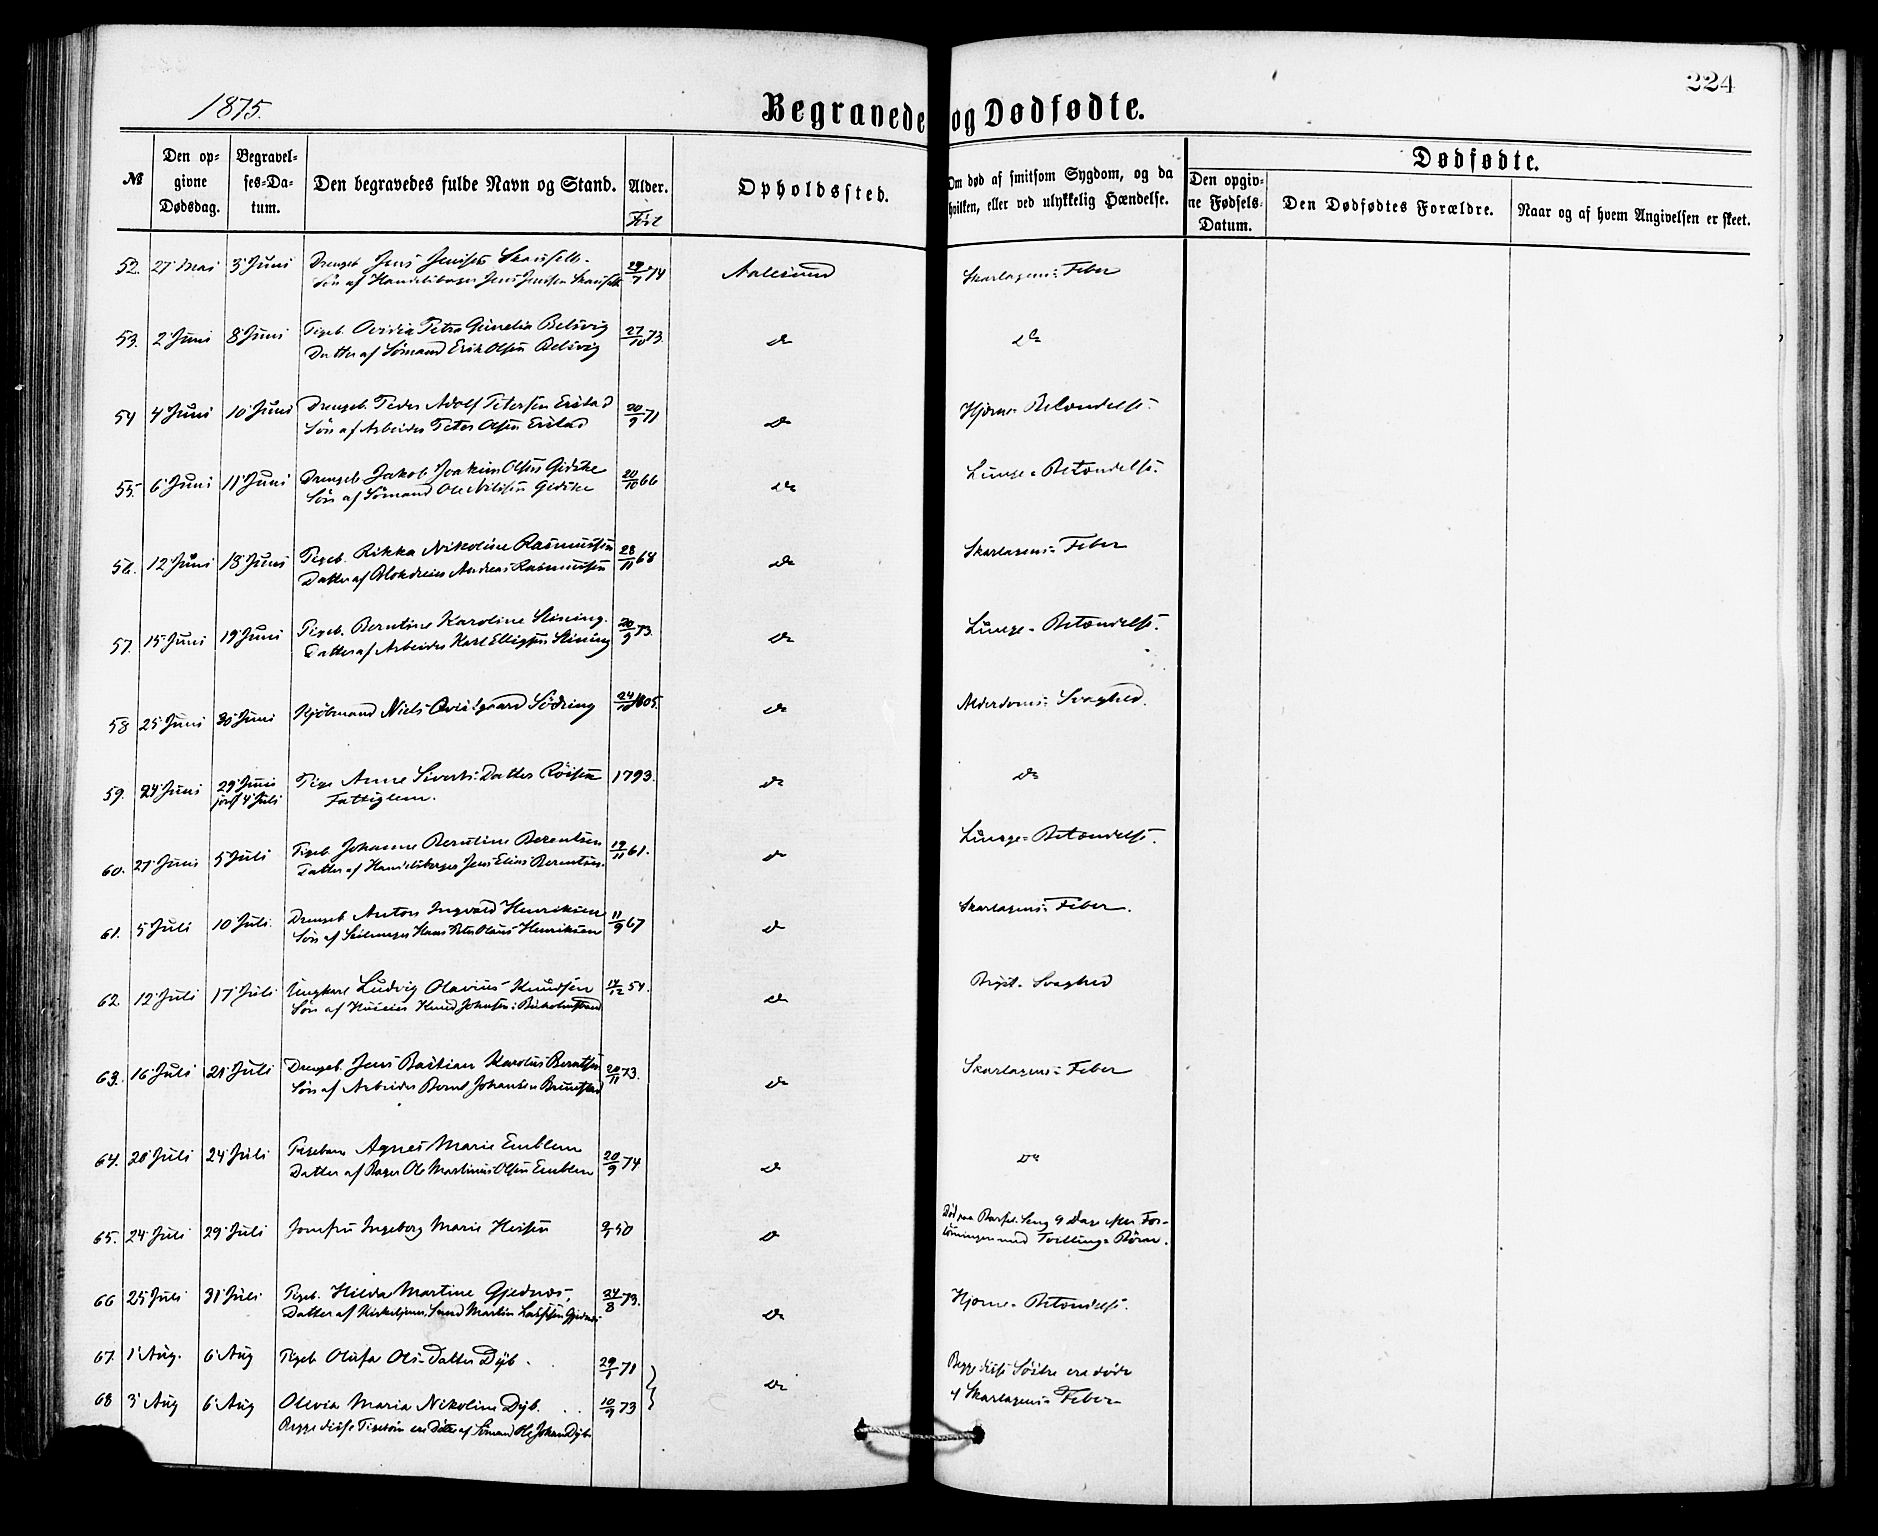 224
1875.
Begravede og Dødfødte.
№
Den op-
givne
Dødsdag.
Begravel-
ses-Da-
tum.
Den begravedes fulde Navn og Stand.
Alder.
Født
Opholdssted.
Om død af smitsom Sygdom, og da
hvilken, eller ved ulykkelig Hændelse.
Dødfødte.
Den opgiv-
ne Fødsels-
Datum.
Den Dødfødtes Forældre.
Naar og af hvem Angivelsen er skeet.
52. 27 Mai 3 Juni Drengeb. Jens Jensen 29/7 74 Aalesund Skarlagens-Feber
Søn af Handelsborger Jens Jensen
53. 2 Juni 8 Juni Pigeb. Ovidia Petra Gunelia Belsvig 27/10 73. do do
Datter af Sømand Erik Olsen Belsvig
54 4 Juni 10 Juni Drengeb. Peder Adolf Petersen Erstad 20/9 71 do Hjerne-Betændelse.
Søn af Arbeider Peter Olsen Erstad
55. 6 Juni 11 Juni Drengeb. Jakob Joakim Olsen Gidske 20/10 66 do Lunge-Betændelse.
Søn af Sømand Ole Nilssen Gidske
56. 12 Juni 18 Juni Pigeb. Rikka Nikoline Rasmussen 28/11 68 do Skarlagens-Feber
Datter af Blokdreier Andreas Rasmussen
57. 15 Juni 19 Juni Pigeb. Berntine Karoline Stening. 20/9 73. do Lunge-Betændelse.
Datter af Arbeider Karl Elligsen Stening
58 25 Juni 30 Juni Kjøbmand Niels Qvistgaard Södring 24/10 1805. do Alderdoms-Svaghed.
59. 24 Juni 29 Juni Pige Anne Siverts-Datter Röisen 1793. do do
jorf 4 Juli Fattiglem.
60. 27 Juni 5 Juli Pigeb. Johanne Berntine Berentsen 19/11 61. do Lunge-Betændelse.
Datter af Handelsborger Jens Elias Berentsen.
61. 5 Juli 10 Juli. Drengeb. Anton Ingvald Henriksen 11/9 67 do Skarlagens-Feber.
Søn af Seilmager Hans Peter Olaus Henriksen
62. 12 Juli 17 Juli Ungkarl Ludvig Olavius Knudsen 14/12 54. do Bryst-Svaghed
Søn af Huseier Knud Johnsen
63. 16 Juli 21 Juli Drengeb. Jens Bastian Karolus Berntsen 20/11 73. do Skarlagens-Feber
Søn af Arbeider Bernt Johansen Brunstad
64. 20 Juli 24 Juli Pigebarn Agnes Marie Emblem 20/9 74 do do
Datter af Bager Ole Martinus Olsen Emblem
65. 24 Juli 29 Juli Jomfru Ingeborg Marie 50 do Död paa Barsel-Seng 9 Dage efter For-
lösningen med Tvilling-Börn.
66 25 Juli 31 Juli Pigeb. Hilda Martine Gjednæs, 24/8 73. do Hjerne-Betændelse.
Datter af Martin Larssen Gjednæs
67. 1 Aug. 6 Aug Pigeb Olufa Ols-Datter Dyb. 29/1 71 do Begge disse Søstre ere døde
68 3 Aug 6 Aug Olevia Maria Nikoline Dyb. 10/9 73 af Skarlagens-Feber
Begge disse Pigebørn ere Døtre af Sömand Ole Johan Dyb